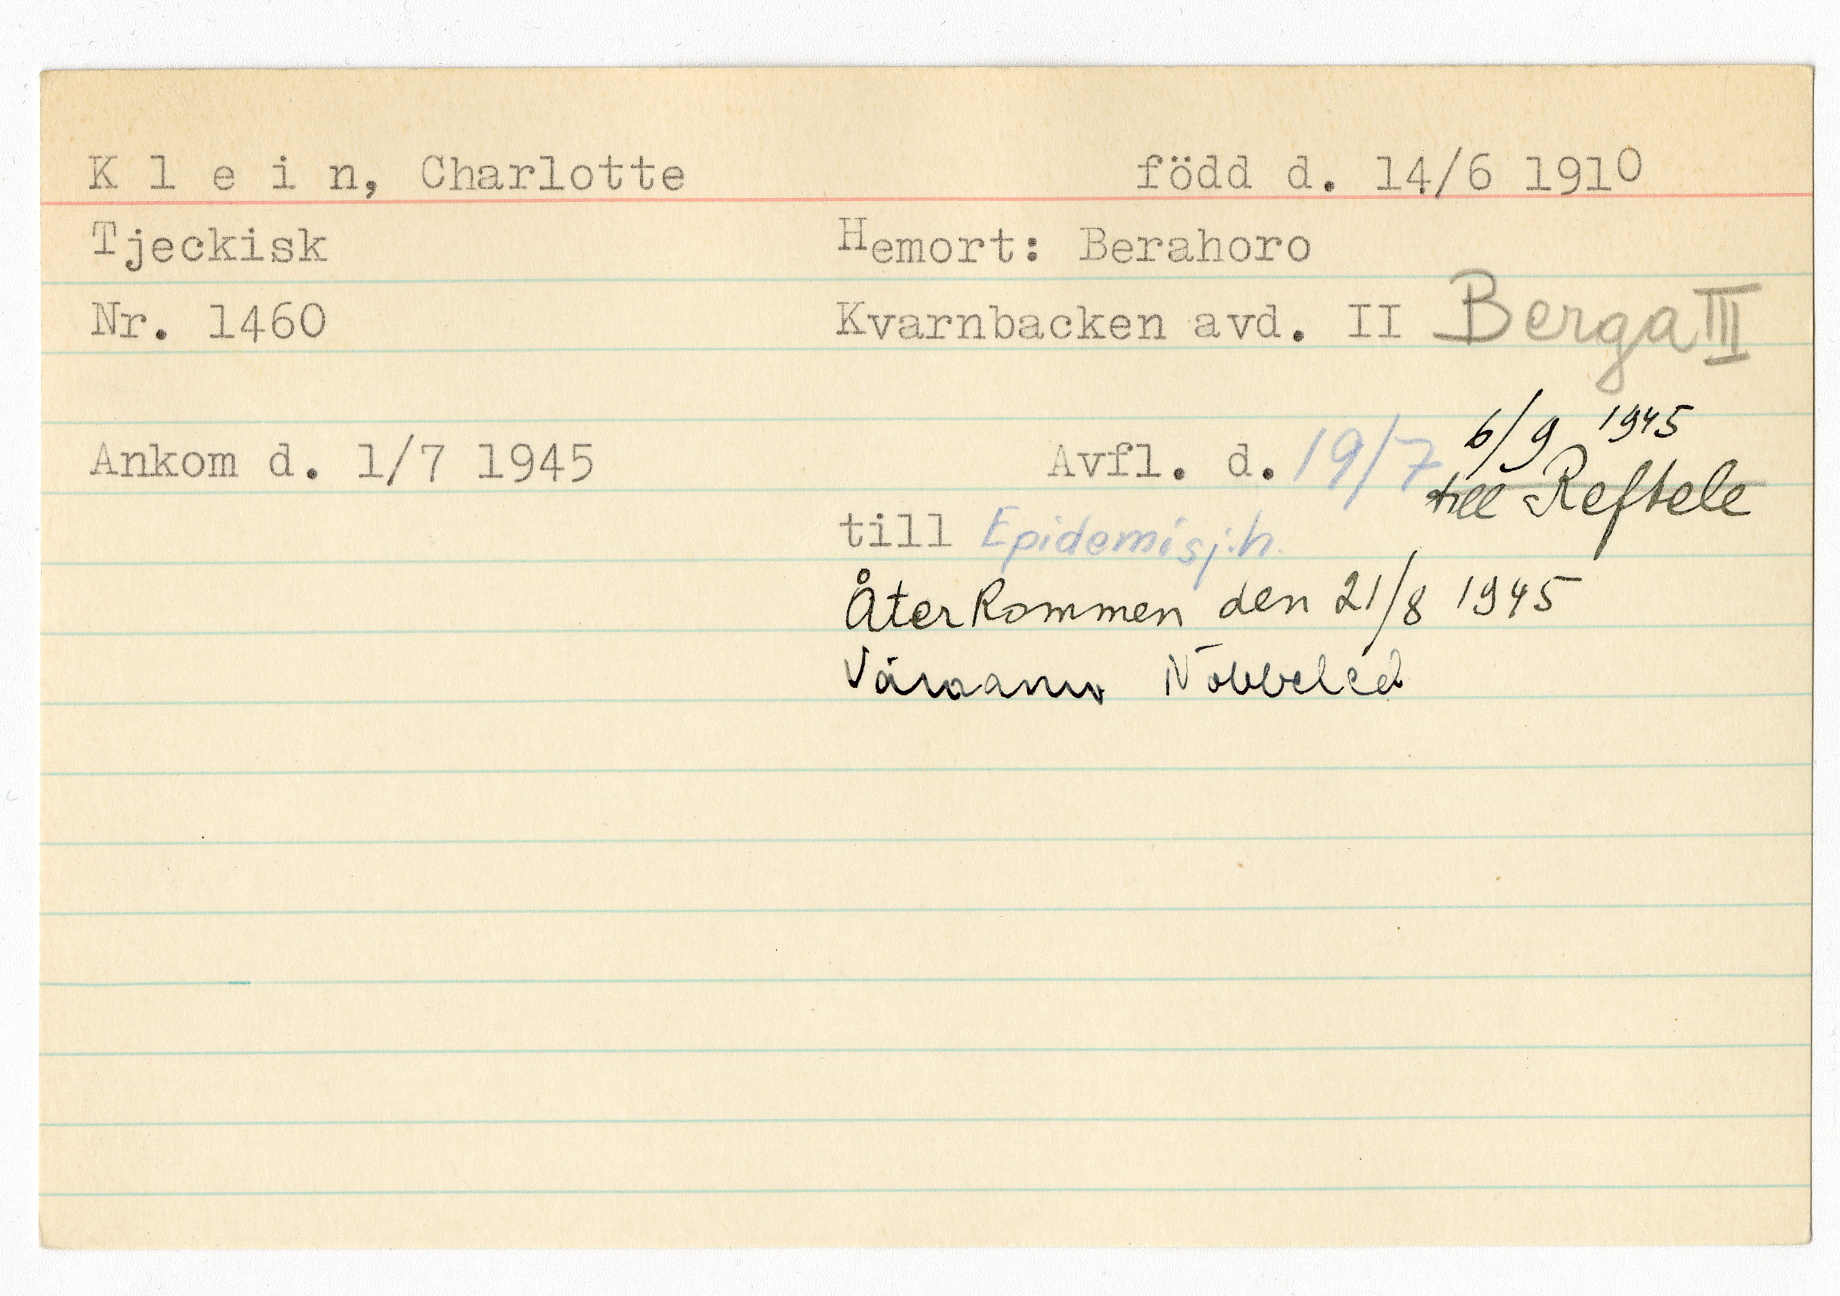 Klein, Charlotte född d. 14/6 1910
Tjeckisk Hemort: Berahoro
Nr. 1460 Kvarnbacken avd. II Berga III
6/9 1945
Ankom d. 1/7 1945 Avfl. d. 19/7
till Reftele
till Epidemisj.h.
Återkommen den 21/8 1945
Nobbeled